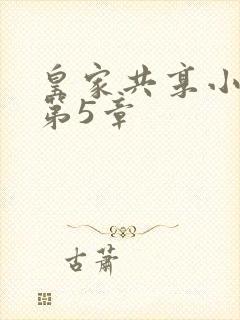 皇家共享小
第5章
古萧